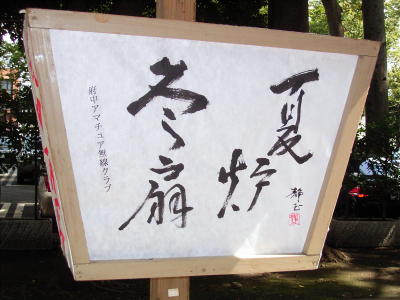 夏炉
冬扇
府中アマチュア無線クラブ